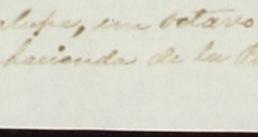 alupe, un octavo
hacienda de la